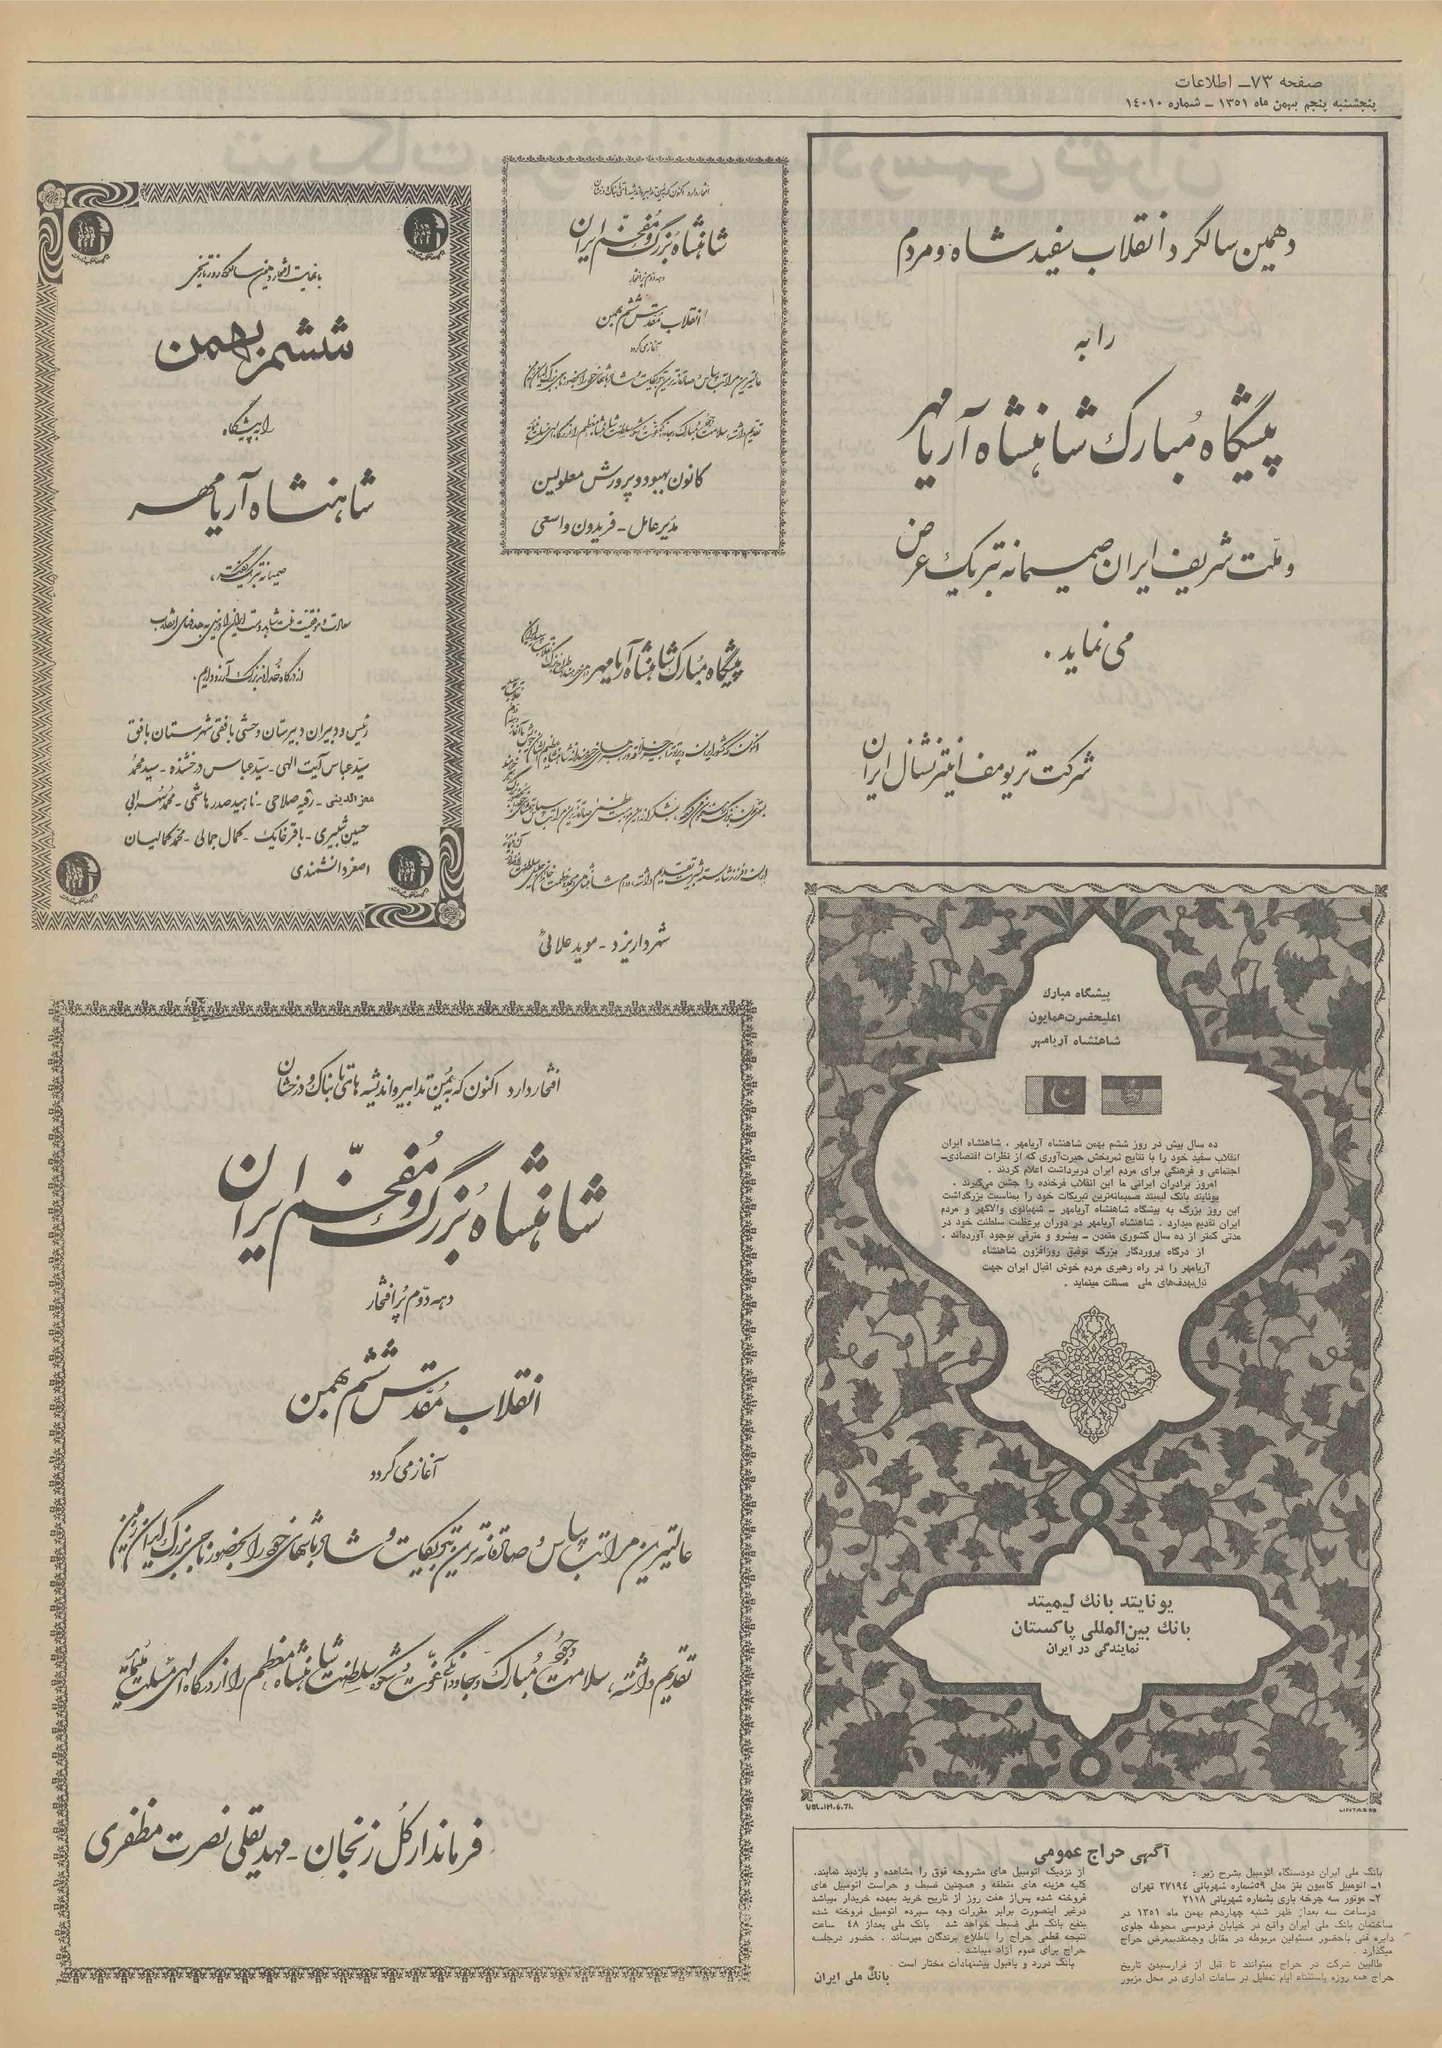 صفحه ۷۳ـ اطلاعات
پنجشنبه پنجم بهمن ماه ۱۳۵۱ ـ شماره ۱۴۰۱۰
دهمین سالگرد انقلاب سفید شاه و مردم
را به
پیشگاه مبارک شاهنشاه آریامهر
و ملت شریف ایران صمیمانه تبریک عرض
می نماید .
شرکت تریومف اینترنشنال ایران
افتخار دارد اکنون که به یمن تدابیر و اندیشه های تابناک و درخشان
شاهنشاه بزرگ و مفخم ایران
دهه دوم پر افتخار
انقلاب مقدس ششم بهمن
آغاز می گردد
عالیترین مراتب سپاس و صادقانه ترین تبریکات و شادباشهای خود را بحضور رهبر بزرگ ایران زمین
تقدیم داشته، سلامت وجود مبارک و جاودانگی عظمت و شکوه سلطنت شاهنشاه معظم را از درگاه الهی مسئلت می نماید
کانون بهبود و پرورش معلولین
مدیر عامل ـ فریدون واسعی
با نهایت افتخار دهمین سالگرد روز تاریخی
ششم بهمن
را به پیشگاه
شاهنشاه آریامهر
صمیمانه تبریک گفته،
سعادت و موفقیت ملت شاهدوست ایران را در نیل به هدفهای انقلاب
از درگاه خداوند بزرگ آرزو داریم.
رئیس و دبیران دبیرستان وحشی بافقی شهرستان بافق
سید عباس آیت الهی ـ سید عباس درخشنده ـ سید محمد
معزالدینی ـ رقیه صلاحی ـ ناهید صدر هاشمی ـ محمد سهرابی
حسین شبیری ـ باقر خانیک ـ کمال جمالی ـ محمد کمالیان
اصغر دانشمندی
پیشگاه مبارک شاهنشاه آریامهر
شهردار یزد ـ موید علائی
پیشگاه مبارک
اعلیحضرت همایون
شاهنشاه آریامهر
ده سال پیش در روز ششم بهمن شاهنشاه آریامهر ، شاهنشاه ایران
انقلاب سفید خود را با نتایج ثمربخش حیرت‌آوری که از نظرات اقتصادی ـ
اجتماعی و فرهنگی برای مردم ایران دربرداشت اعلام کردند .
امروز برادران ایرانی ما این انقلاب فرخنده را جشن می‌گیرند .
یونایتد بانک لیمیتد صمیمانه‌ترین تبریکات خود را بمناسبت بزرگداشت
این روز بزرگ به پیشگاه شاهنشاه آریامهر ـ شهبانوی والاگهر و مردم
ایران تقدیم میدارد . شاهنشاه آریامهر در دوران پرعظمت سلطنت خود در
مدتی کمتر از ده سال کشوری متمدن ـ پیشرو و مترقی بوجود آورده‌اند .
از درگاه پروردگار بزرگ توفیق روزافزون شاهنشاه
آریامهر را در راه رهبری مردم خوش اقبال ایران جهت
نیل‌بهدف‌های ملی مسئلت مینماید .
یونایتد بانک لیمیتد
بانک بین‌المللی پاکستان
نمایندگی در ایران
UBL.IM.6.71.
LINTAS
افتخار دارد اکنون که به یمن تدابیر و اندیشه های تابناک و درخشان
شاهنشاه بزرگ و مفخم ایران
دهه دوم پر افتخار
انقلاب مقدس ششم بهمن
آغاز می گردد
عالیترین مراتب سپاس و صادقانه ترین تبریکات و شادباشهای خود را بحضور رهبر بزرگ ایران زمین
تقدیم داشته، سلامت وجود مبارک و جاودانگی عظمت و شکوه سلطنت شاهنشاه معظم را از درگاه الهی مسئلت می نماید
فرماندار کل زنجان ـ مهدیقلی نصرت مظفری
آگهی حراج عمومی
بانک ملی ایران دودستگاه اتومبیل بشرح زیر :
۱ـ اتومبیل کامیون بنز مدل ۵۹ شماره شهربانی ۲۷۱۹۴ تهران
۲ـ موتور سه چرخه باری بشماره شهربانی ۲۱۱۸
درساعت سه بعداز ظهر شنبه چهاردهم بهمن ماه ۱۳۵۱ در
ساختمان بانک ملی ایران واقع در خیابان فردوسی محوطه جلوی
دایره فنی باحضور مسئولین مربوطه در مقابل وجه‌نقدبمعرض حراج
میگذارد .
طالبین شرکت در حراج میتوانند تا قبل از فرارسیدن تاریخ
حراج همه روزه باستثناء ایام تعطیل در ساعات اداری در محل مزبور
از نزدیک اتومبیل های مشروحه فوق را مشاهده و بازدید نمایند.
کلیه هزینه های متعلقه و همچنین ضبط و حراست اتومبیل های
فروخته شده پس‌از هفت روز از تاریخ خرید بعهده خریدار میباشد
درغیر اینصورت برابر مقررات وجه سپرده اتومبیل فروخته شده
بنفع بانک ملی ضبط خواهد شد بانک ملی بعداز ۴۸ ساعت
نتیجه قطعی حراج را باطلاع برندگان میرساند . حضور درجلسه
حراج برای عموم آزاد میباشد .
بانک دررد و یاقبول پیشنهادات مختار است .
بانک ملی ایران